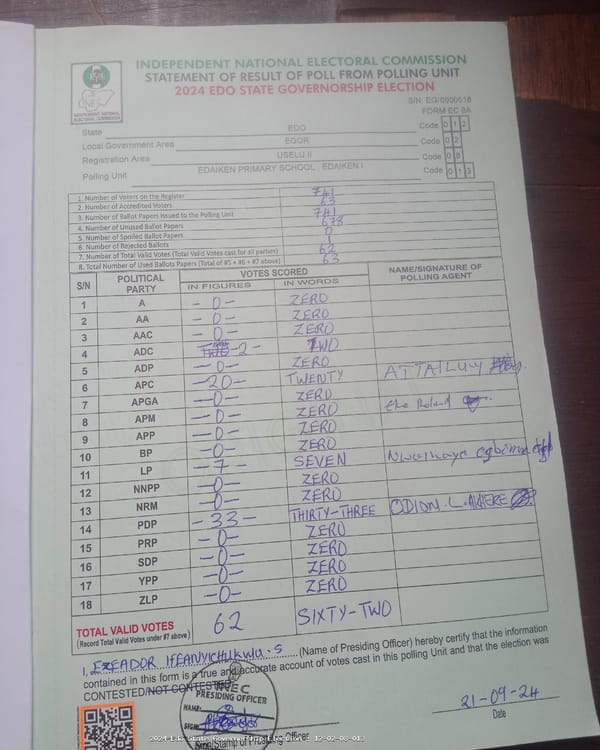 INDEPENDENT NATIONAL ELECTORAL COMMISSION
STATEMENT OF RESULT OF POLL FROM POLLING UNIT
2024 EDO STATE GOVERNORSHIP ELECTION
INEC
INDEPENDENT NATIONAL
ELECTORAL COMMISSION
S/N: EG/0000518
FORM EC 8A
State EDO Code 0 1 2
Local Government Area EGOR Code 0 2
Registration Area USELU II Code 0 8
Polling Unit EDAIKEN PRIMARY SCHOOL, EDAIKEN I Code 0 1 3
1. Number of Voters on the Register 741
2. Number of Accredited Voters 63
3. Number of Ballot Papers Issued to the Polling Unit 741
4. Number of Unused Ballot Papers 678
5. Number of Spoiled Ballot Papers 0
6. Number of Rejected Ballots 1
7. Number of Total Valid Votes (Total Valid Votes cast for all parties) 62
8. Total Number of Used Ballots Papers (Total of #5 + #6 + #7 above) 63
S/N POLITICAL PARTY VOTES SCORED NAME/SIGNATURE OF POLLING AGENT
IN FIGURES IN WORDS
1 A -0- ZERO
2 AA -0- ZERO
3 AAC -0- ZERO
4 ADC -2- TWO
5 ADP -0- ZERO
6 APC -20- TWENTY
7 APGA -0- ZERO
8 APM -0- ZERO
9 APP -0- ZERO
10 BP -0- ZERO
11 LP -7- SEVEN
12 NNPP -0- ZERO
13 NRM -0- ZERO
14 PDP -33- THIRTY-THREE ODION. L.
15 PRP -0- ZERO
16 SDP -0- ZERO
17 YPP -0- ZERO
18 ZLP -0- ZERO
TOTAL VALID VOTES 62 SIXTY-TWO
(Record Total Valid Votes under #7 above)
I, IFEANYICHUKWU. S (Name of Presiding Officer) hereby certify that the information
contained in this form is a true and accurate account of votes cast in this polling Unit and that the election was
CONTESTED/NOT CONTESTED
INEC
PRESIDING OFFICER
NAME:
SIGN:
21-09-24
Date
Sign/Stamp of Presiding Officer
2024 Edo State Governorship Election - 12-02-08-013